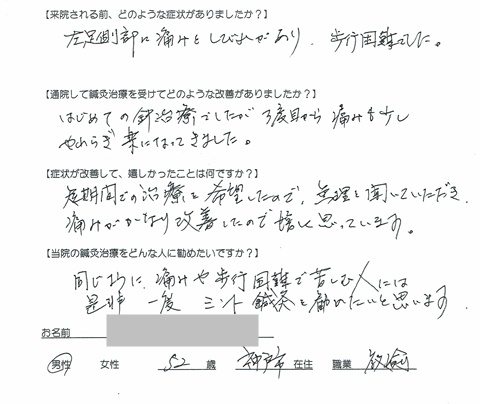 【来院される前、どのような症状がありましたか？】
左足側部に痛みとしびれがあり、歩行困難でした。
【通院して鍼灸治療を受けてどのような改善がありましたか？】
はじめての針治療でしたが3度目から痛みも少し
やわらぎ楽になってきました。
【症状が改善して、嬉しかったことは何ですか？】
短期間での治療を希望したので、無理を聞いていただき、
痛みがかなり改善したので嬉しく思っています。
【当院の鍼灸治療をどんな人に勧めたいですか？】
同じように、痛みや歩行困難で苦しむ人には
是非一度 ミント鍼灸を勧めたいと思います。
お名前
男性 女性 52 歳 神戸市 在住 職業